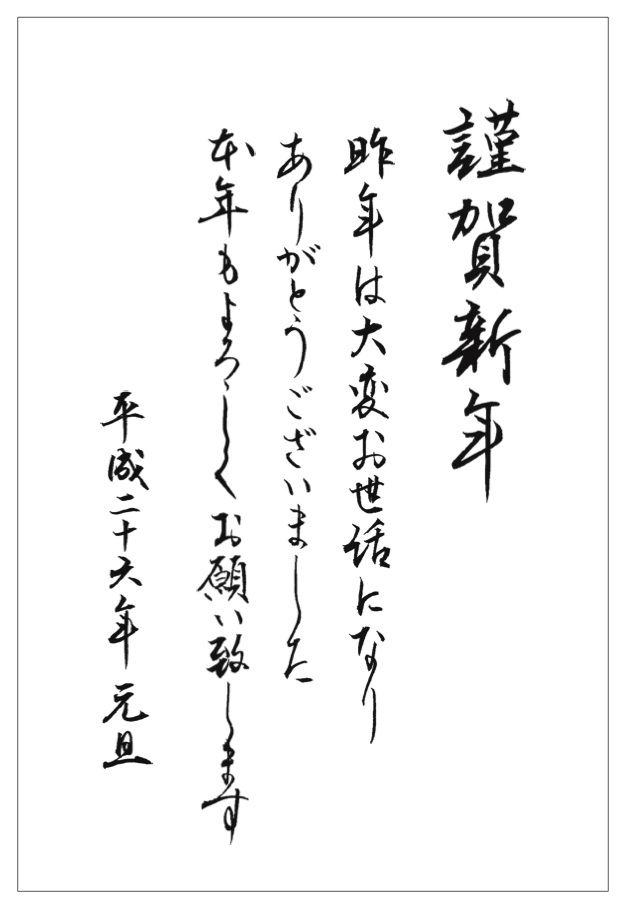 謹賀新年
昨年は大変お世話になり
ありがとうございました
本年もよろしくお願い致します
平成二十六年 元旦